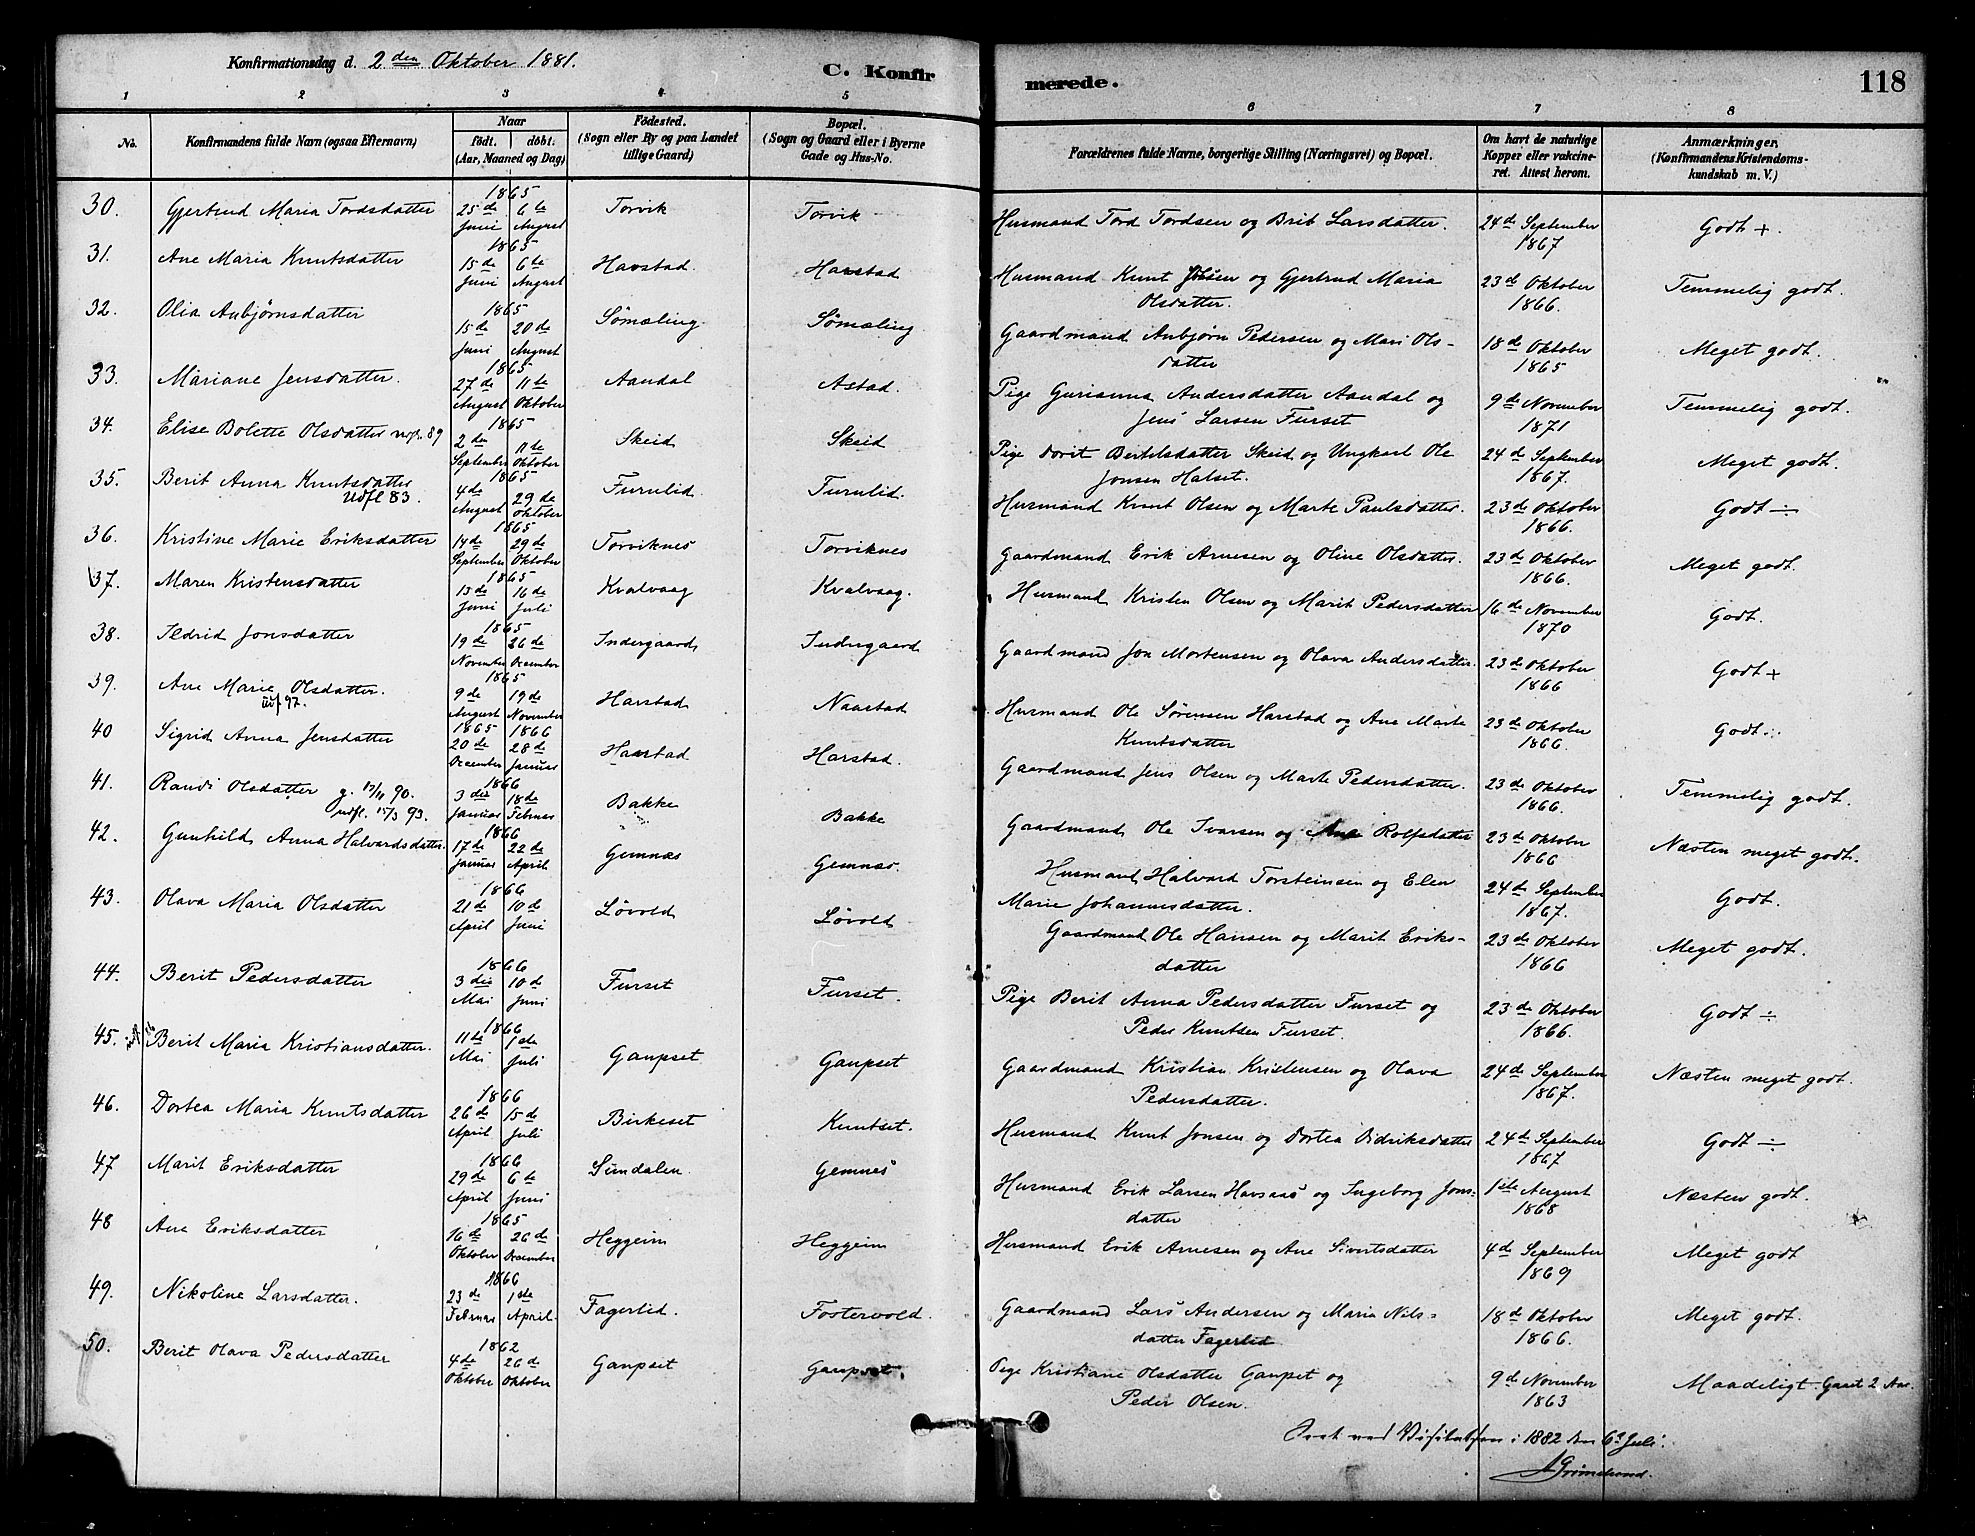 Konfirmationsdag d. 2den Oktober 1881.
C. Konfirmerede.
118
1 2 3 4 5 6 7 8
No. Konfirmandens fulde Navn (ogsaa Efternavn) Naar födt. döbt. (Aar, Maaned og Dag) Födested. (Sogn eller By og paa Landet tillige Gaard) Bopæl. (Sogn og Gaard eller i Byerne Gade og Hus-No. Forældrenes fulde Navne, borgerlige Stilling (Næringsvei) og Bopæl. Om havt de naturlige Kopper eller vakcineret. Attest herom. Anmærkninger. (Konfirmandens Kristendomskundskab m. V.)
30. Gjertrud Maria Tordsdatter 1865 25de Juni 6te August Torvik Torvik Husmand Tord Tordsen og Brit Larsdatter. 24de September 1867 Godt +.
31. Ane Maria Knutsdatter 1865 15de Juni 6te August Havstad Harstad Husmand Knut Olsen og Gjertrud Maria Olsdatter. 23de Oktober 1866. Temmelig godt.
32. Olia Anbjørnsdatter 1865 15de Juni 20de August Sömæling Sömæling Gaardmand Anbjørn Pedersen og Mari Olsdatter 18de Oktober 1865 Meget godt.
33. Mariane Jensdatter. 1865 27de August 11te Oktober Aandal Astad. Pige Gurianna Andersdatter Aandal og Jens Larsen Furset 9de November 1871 Temmelig godt.
34. Elise Bolette Olsdatter udfl. 89 1865 2den September 11te Oktober Skeid Skeid Pige Dorit Bertelsdatter Skeid og Ungkarl Ole Jonsen Halset. 24de September 1867. Meget godt.
35. Berit Anna Knutsdatter Udfl 83. 1865 4de August 29de Oktober Furulid. Furulid. Husmand Knut Olsen og Marte Paulsdatter. 23de Oktober 1866. Godt ÷
36. Kristine Marie Eriksdatter 1865 14de September 29de Oktober Torviknes Torviknes Gaardmand Erik Arnesen og Oline Olsdatter. 23de Oktober 1866. Meget godt.
37. Maren Kristensdatter 1865 13de Juni 16de Juli Kvalvaag Kvalvaag. Husmand Kristen Olsen og Marit Pedersdatter 16de November 1870 Godt.
38. Ildrid Jonsdatter 1865 19de November 26de December Indergaard Indergaard Gaardmand Jon Mortensen og Olava Andersdatter. 23de Oktober 1866 Godt +
39. Ane Marie Olsdatter. udf 97. 1865 9de August 19de November Harstad Naastad Husmand Ole Sørensen Harstad og Ane Marte Knutsdatter 23de Oktober 1866. Godt ÷
40 Sigrid Anna Jensdatter 1865 20de December 1866 28de Januar Harstad Harstad. Gaardmand Jens Olsen og Marte Pedersdatter. 23de Oktober 1866. Temmelig godt.
41. Randi Olsdatter g. 17/11 90. udfl. 15/3 93. 1866 3die Januar 18de Februar Bakke Bakke Gaardmand Ole Ivarsen og Ane Rolfsdatter 23de Oktober 1866 Næsten meget godt.
42. Gunhild Anna Halvardsdatter. 1866 17de Januar 22de April Gemnæs Gemnæs. Husmand Halvard Torsteinsen og Elen Marie Johannesdatter. 24de September 1867. Godt.
43. Olava Maria Olsdatter 1866 21de April 10de Juni Løvold Løvold Gaardmand Ole Hansen og Marit Eriksdatter 23de Oktober 1866 Meget godt.
44. Berit Pedersdatter 1866 3die Mai 10de Juni Furset Furset. Pige Berit Anna Pedersdatter Furset og Peder Knutsen Furset. 23de Oktober 1866. Godt ÷
45. Berit Maria Kristiansdatter. 1866 11te Mai 1ste Juli Gaupset Gaupset Gaardmand Kristian Kristensen og Olava Pedersdatter. 24de September 1867. Næsten meget godt.
46. Dortea Maria Knutsdatter 1866 26de April 15de Juli Birkeset Knutset. Husmand Knut Jonsen og Dortea Didriksdatter 24de September 1867 Godt ÷
47 Marit Eriksdatter 1866 29de April 6te Juni Sundalen. Gemnes Husmand Erik Larsen Havsaas og Ingeborg Jonsdatter 1ste August 1868 Næsten godt.
48 Ane Eriksdatter 1865 16de Oktober 26de December Heggeim Heggeim Husmand Erik Arnesen og Ane Sivertsdatter 4de September 1869 Meget godt
49. Nikoline Larsdatter. 1866 23de Februar 1ste April. Fagerlid. Fostervold. Gaardmand Lars Andersen og Maria Nilsdatter Fagerlid 18de Oktober 1866. Meget godt.
50. Berit Olava Pedersdatter 1862 4de Oktober 26de Oktober Gaupset Gaupset. Pige Kristiane Olsdatter Gaupset og Peder Olsen. 9de November 1863 Maadeligt. Gaaet 2 Aar.
ved Visitatsen i 1882 den 6te Juli.
Grimelund.